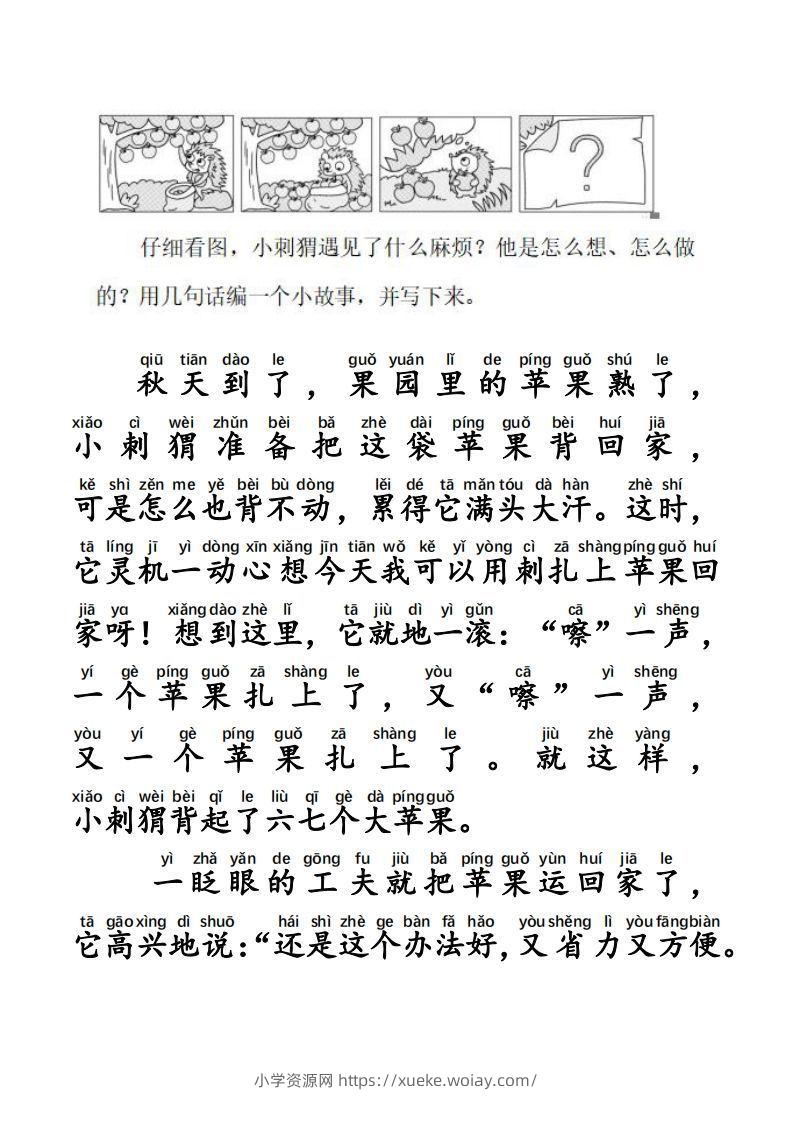 ?
仔细看图，小刺猬遇见了什么麻烦？他是怎么想、怎么做
的？用几句话编一个小故事，并写下来。
qiū tiān dào le guǒ yuán lǐ de píng guǒ shú le
秋天到了，果园里的苹果熟了，
xiǎo cì wèi zhǔn bèi bǎ zhè dài píng guǒ bèi huí jiā
小刺猬准备把这袋苹果背回家，
kě shì zěn me yě bèi bù dòng lěi dé tā mǎn tóu dà hàn zhè shí
可是怎么也背不动，累得它满头大汗。这时，
tā líng jī yì dòng xīn xiǎng jīn tiān wǒ kě yǐ yòng cì zā shàng píng guǒ huí
它灵机一动心想今天我可以用刺扎上苹果回
jiā ya xiǎng dào zhè lǐ tā jiù dì yì gǔn cā yì shēng
家呀！想到这里，它就地一滚：“嚓”一声，
yí gè píng guǒ zā shàng le yòu cā yì shēng
一个苹果扎上了，又“嚓”一声，
yòu yí gè píng guǒ zā shàng le jiù zhè yàng
又一个苹果扎上了。就这样，
xiǎo cì wèi bèi qǐ le liù qī gè dà píng guǒ
小刺猬背起了六七个大苹果。
yì zhǎ yǎn de gōng fu jiù bǎ píng guǒ yùn huí jiā le
一眨眼的工夫就把苹果运回家了，
tā gāo xìng dì shuō hái shì zhè ge bàn fǎ hǎo yòu shěng lì yòu fāng biàn
它高兴地说：“还是这个办法好，又省力又方便。
小学资源网 https://xueke.woiay.com/